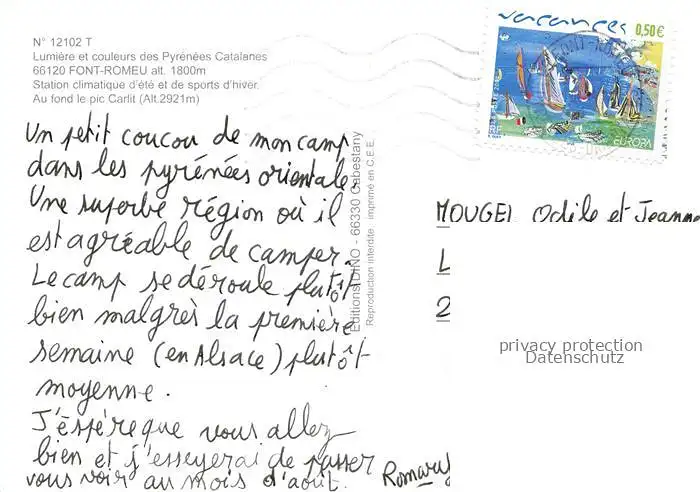 N° 12102 T
Lumière et couleurs des Pyrénées Catalanes
66120 FONT-ROMEU alt. 1800m
Station climatique d'été et de sports d'hiver.
Au fond le pic Carlit (Alt.2921m)
vacances 0,50€
RF
EUROPA
Un petit coucou de mon camp
dans les pyrénées orientale.
Une superbe région où il
est agréable de camper.
Le camp se déroule plutôt
bien malgrès la première
semaine (en Alsace) plutôt
moyenne.
J'éspére que vous allez
bien et j'esseyerai de passer
vous voir au mois d'août.
Romary
Editions DINO - 66330 Cabestany
Reproduction interdite imprimé en C.E.E.
MOUGEL Odile et Jeanne
L
2
privacy protection
Datenschutz